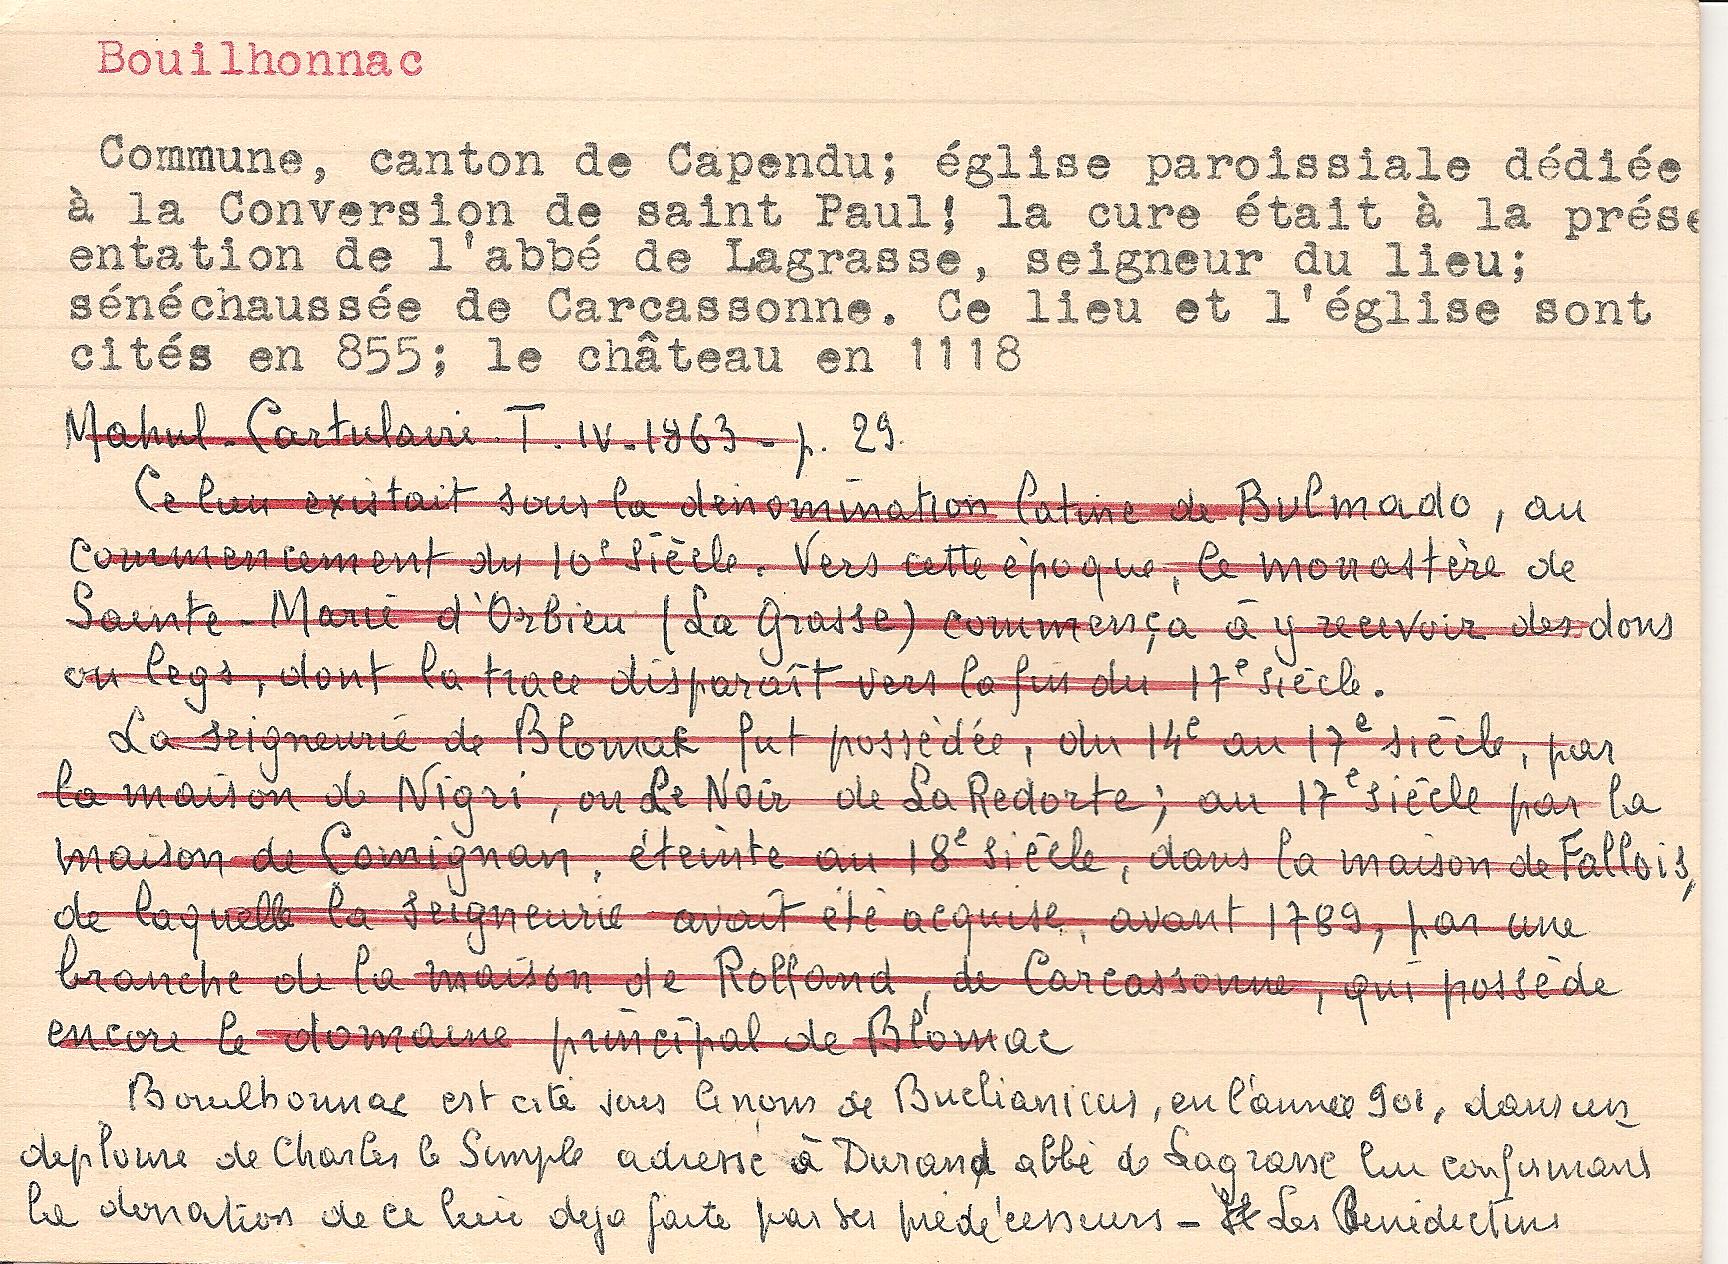 Bouilhonnac
Commune, canton de Capendu; église paroissiale dédiée
à la Conversion de saint Paul; la cure était à la prés
entation de l'abbé de Lagrasse, seigneur du lieu;
sénéchaussée de Carcassonne. Ce lieu et l'église sont
cités en 855; le château en 1118
Mahul - Cartulaire T. IV - 1863 - p. 29.
Ce lieu existait sous la dénomination latine de Bulmado, au
commencement du 10e siècle. Vers cette époque, le monastère de
Sainte-Marie d'Orbieu (La Grasse) commença à y recevoir des dons
ou legs, dont la trace disparaît vers la fin du 17e siècle.
La seigneurie de Blomac fut possèdée, du 14e au 17e siècle, par
la maison de Nigri, ou Le Noir de La Redorte; au 17e siècle par la
maison de Comignan, éteinte au 18e siècle, dans la maison de Fallois,
de laquelle la seigneurie avait été acquise, avant 1789, par une
branche de la maison de Rolland, de Carcassonne, qui possède
encore le domaine principal de Blomac
Bouilhonnac est cité sous le nom de Buclianicus, en l'année 901, dans un
deplome de Charles le Simple adresse à Durand abbé de Lagrasse lui confirmant
la donation de ce lieu deja faite par ses prédécesseurs - Les Benedictins